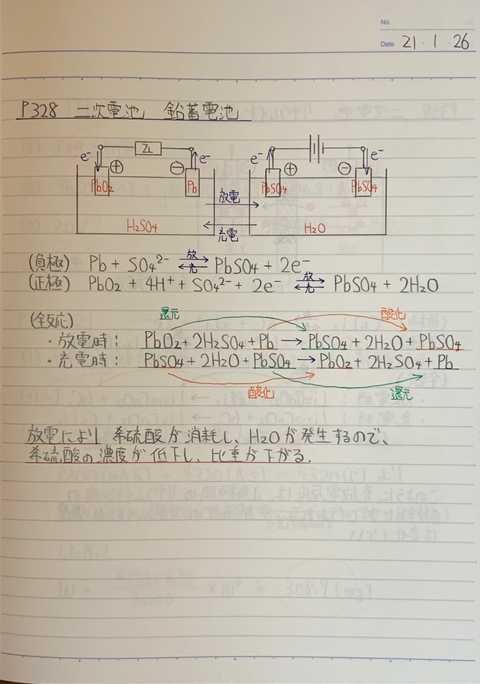 No.
Date 21・1・26
P328 二次電池 鉛蓄電池
e⁻ ZL e⁻ e⁻ e⁻
⊕ ⊖ ⊕ ⊖
PbO₂ Pb 放電 PbSO₄ PbSO₄
H₂SO₄ 充電 H₂O
(負極) Pb + SO₄²⁻ 放⇄充 PbSO₄ + 2e⁻
(正極) PbO₂ + 4H⁺ + SO₄²⁻ + 2e⁻ 放⇄充 PbSO₄ + 2H₂O
(全反応) 還元 酸化
・放電時: PbO₂ + 2H₂SO₄ + Pb → PbSO₄ + 2H₂O + PbSO₄
・充電時: PbSO₄ + 2H₂O + PbSO₄ → PbO₂ + 2H₂SO₄ + Pb
酸化 還元
放電により 希硫酸が消耗し、H₂Oが発生するので、
希硫酸の濃度が低下し、比重が下がる.